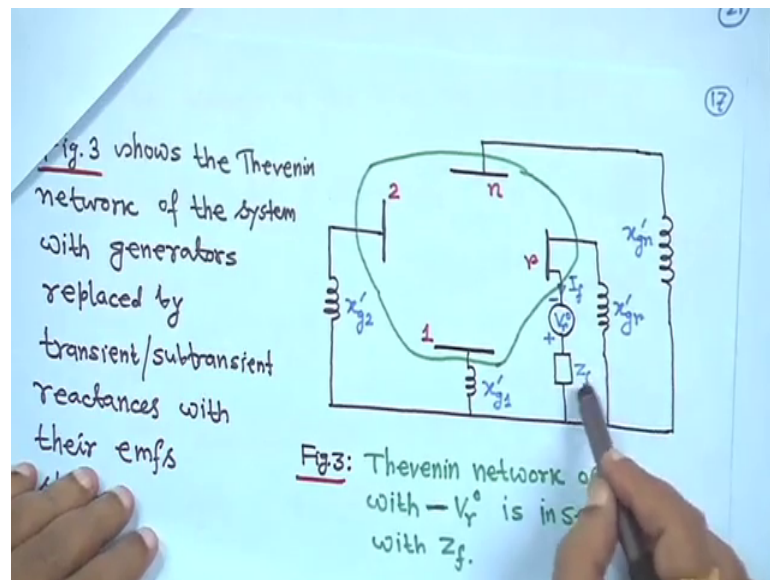 (17)
Fig. 3 shows the Thevenin
network of the system
with generators
replaced by
transient/subtransient
reactances with
their emfs
2
n
r
1
x'g2
x'g1
x'gn
x'gr
If
-
Vr°
+
Zf
Fig.3: Thevenin network
with -Vr° is in
with Zf.